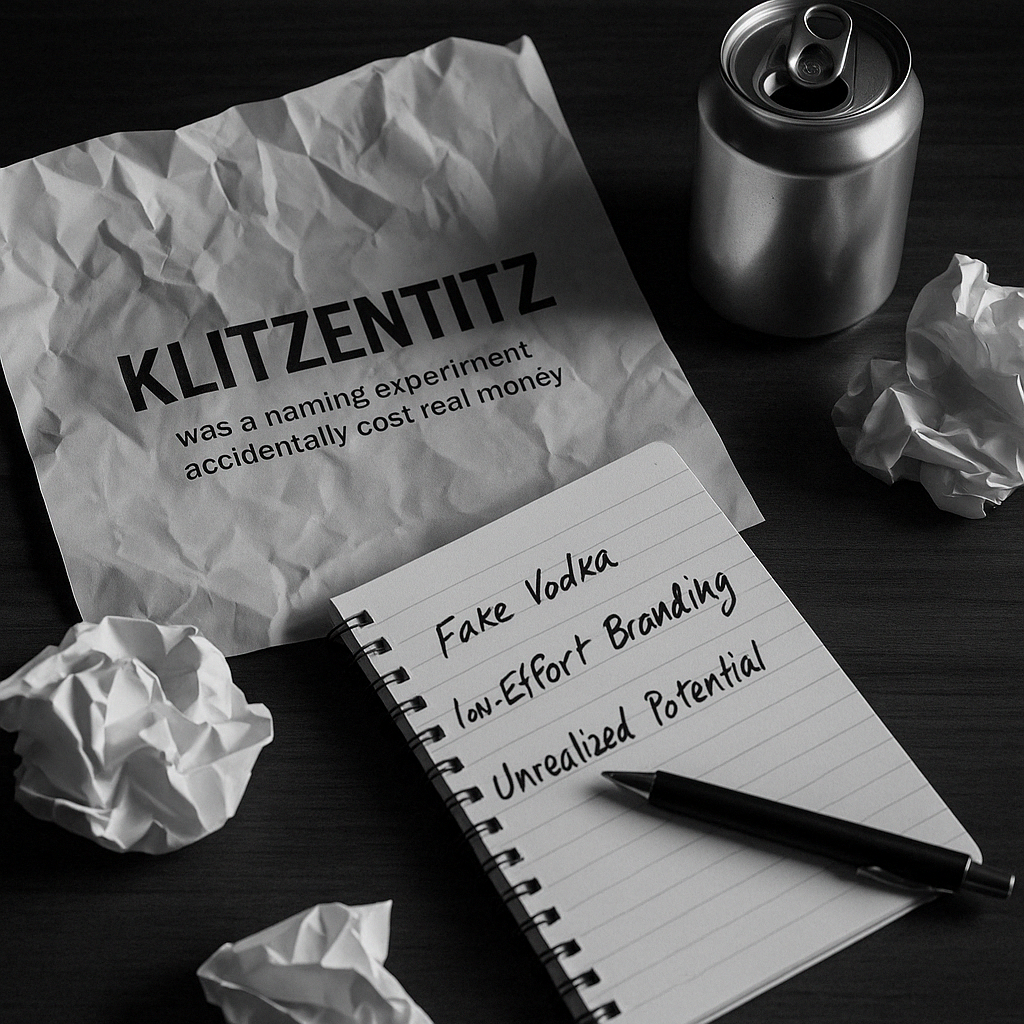 KLITZENTITZ
was a naming experirnent
accidentally cost real monéy
Fake Vodka
low-Effort Branding
Unrealized Potential